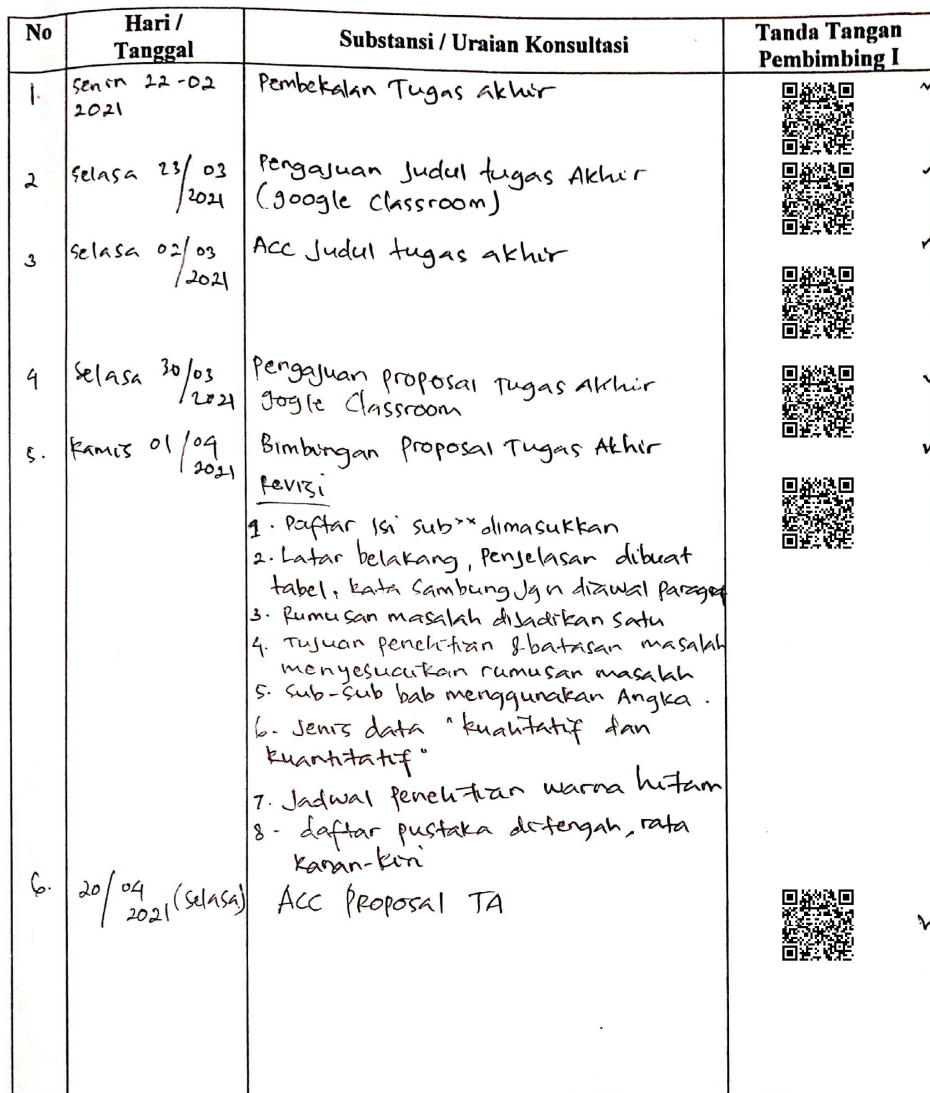 No Hari / Tanggal Substansi / Uraian Konsultasi Tanda Tangan Pembimbing I
1. Senin 22-02 2021 Pembekalan Tugas akhir
2 Selasa 23/03/2021 Pengajuan Judul tugas Akhir
(google Classroom)
3 Selasa 02/03/2021 Acc Judul tugas akhir
4 Selasa 30/03/2021 Pengajuan proposal Tugas Akhir
gogle Classroom
5. Kamis 01/04/2021 Bimbingan Proposal Tugas Akhir
Revisi
1. Daftar Isi sub" dimasukkan
2. Latar belakang, Penjelasan dibuat
tabel, kata sambung Jgn diawal Paragraf
3. Rumusan masalah dijadikan satu
4. Tujuan penelitian & batasan masalah
menyesuaikan rumusan masalah
5. Sub-sub bab menggunakan Angka.
6. Jenis data "kualitatif dan
kuantitatif"
7. Jadwal Penelitian warna hitam
8 - daftar pustaka ditengah, rata
kanan-kiri
6. 20/04/2021 (Selasa) ACC PROPOSAL TA